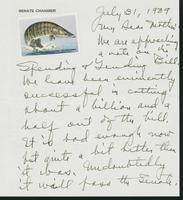 SENATE CHAMBER
July 31, 1939
My Dear Mother:
We are approaching
a vote on the
Spending & Lending Bill.
We have been eminently
successful in cutting
about a billion and a
half out of the bill.
It is bad enough now
but quite a bit better than
it was. Undoubtedly
it will pass the Senate,